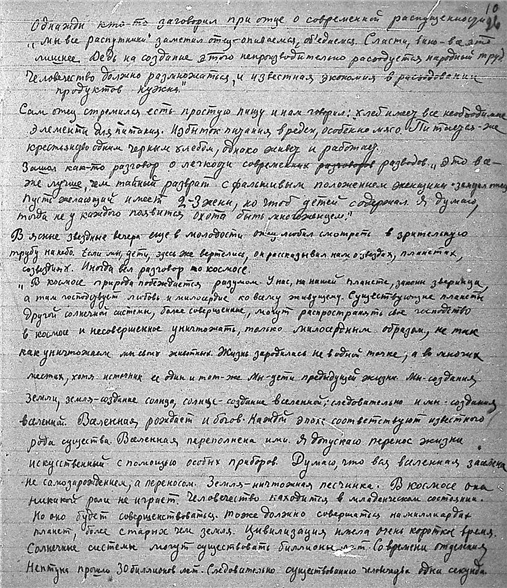 10
Однажды кто-то заговорил при отце о современной распущенности
"Мы все распутники" заметил отец - опиваемся, объедаемся. Сласти, вино - все это
лишнее. Ведь на создание этого непроизводительно расходуется народный труд
Человечество должно размножаться, и известная экономия в расходовании
продуктов нужна."
Сам отец стремился есть простую пищу и нам говорил: хлеб имеет все необходимые
элементы для питания. Избыток питания вреден, особенно мясо. Питается-же
крестьянство одним черным хлебом, однако живет и работает.
Зашел как-то разговор о легкости современных разводов. "Это все-
же лучше, чем тайный разврат с фальшивым положением женщины - заметил отец
Пусть желающий имеет 2-3 жены, но чтоб детей содержал. Я думаю,
тогда не у каждого появится охота быть многоженцем."
В ясные звездные вечера еще в молодости отец любил смотреть в зрительную
трубу на небо. Если мы, дети, здесь же вертелись, он рассказывал нам о звездах, планетах,
созвездиях. Иногда вел разговор о космосе.
"В космосе природа побеждается разумом. У нас, на нашей планете, законы зверинца,
а там господствует любовь и милосердие ко всему живущему. Существующие планеты
другой солнечной системы, более совершенные, могут распространять свое господство
в космосе и несовершенное уничтожать, только милосердным образом, не так
как уничтожаем мы своих животных. Жизнь зародилась не в одной точке, а во многих
местах, хотя источник ее один и тот-же. Мы - дети предыдущей жизни. Мы - создания
Земли, земля - создание солнца, солнце - создание вселенной; следовательно и мы - создания
вселенной. Вселенная рождает и богов. Каждой эпохе соответствуют известного
рода существа. Вселенная переполнена ими. Я допускаю перенос жизни
искуственный с помощью особых приборов. Думаю, что вся вселенная заселена
не самозарождением, а переносом. Земля - ничтожная песчинка. В космосе она
никакой роли не играет. Человечество находится в младенческом состоянии.
Но оно будет совершенствоваться. Тоже должно совершаться на миллиардах
планет, более старых чем земля. Цивилизация имела очень короткое время.
Солнечные системы могут существовать биллионы лет. Со времени отделения
Нептуна прошло 30 биллионов лет. Следовательно существование человечества одна секунда.